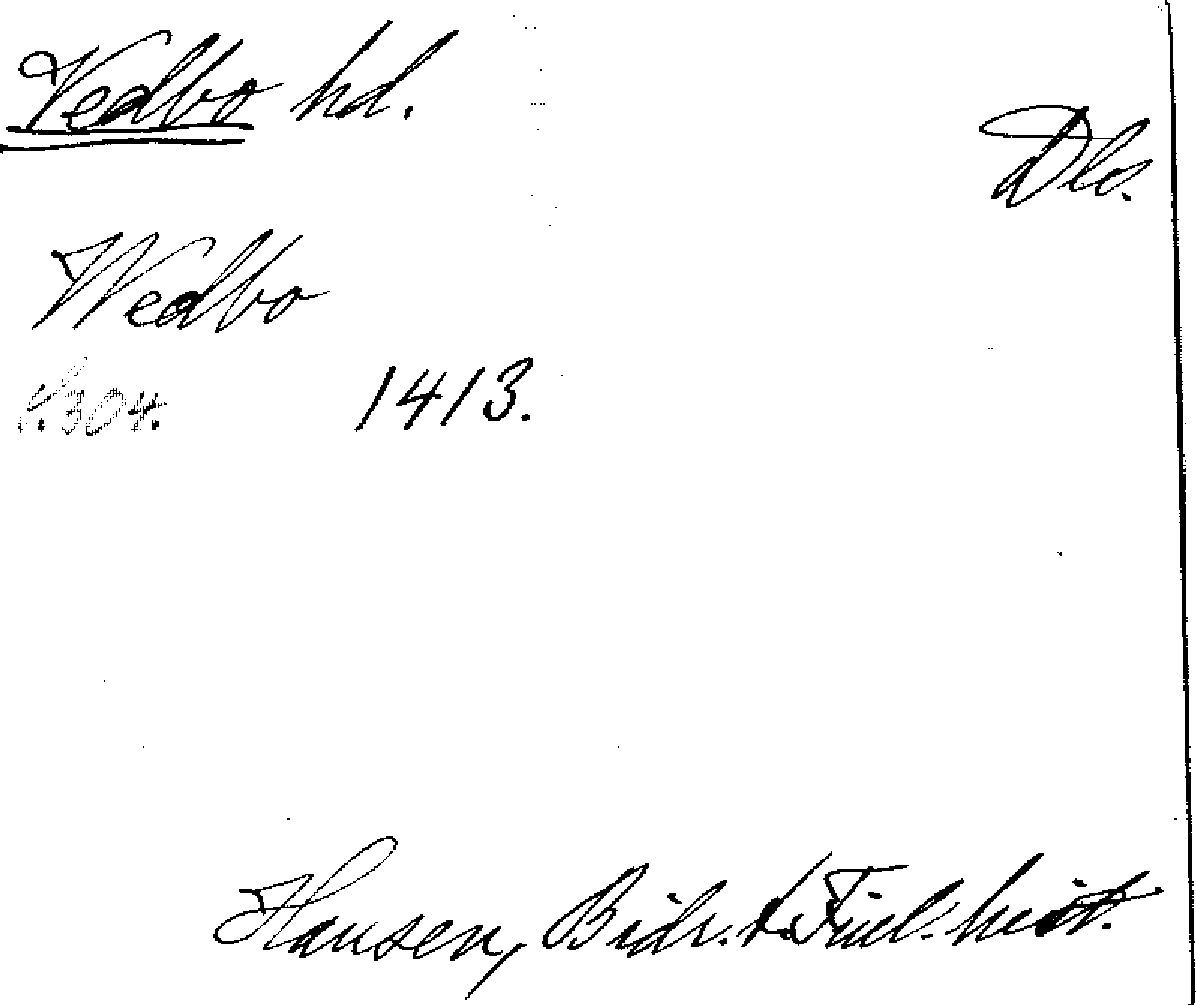 Vedbo hd.
Dls.
Wedbo
s. 304. 1413.
Hausen, Bidr. t. Finl. hist.